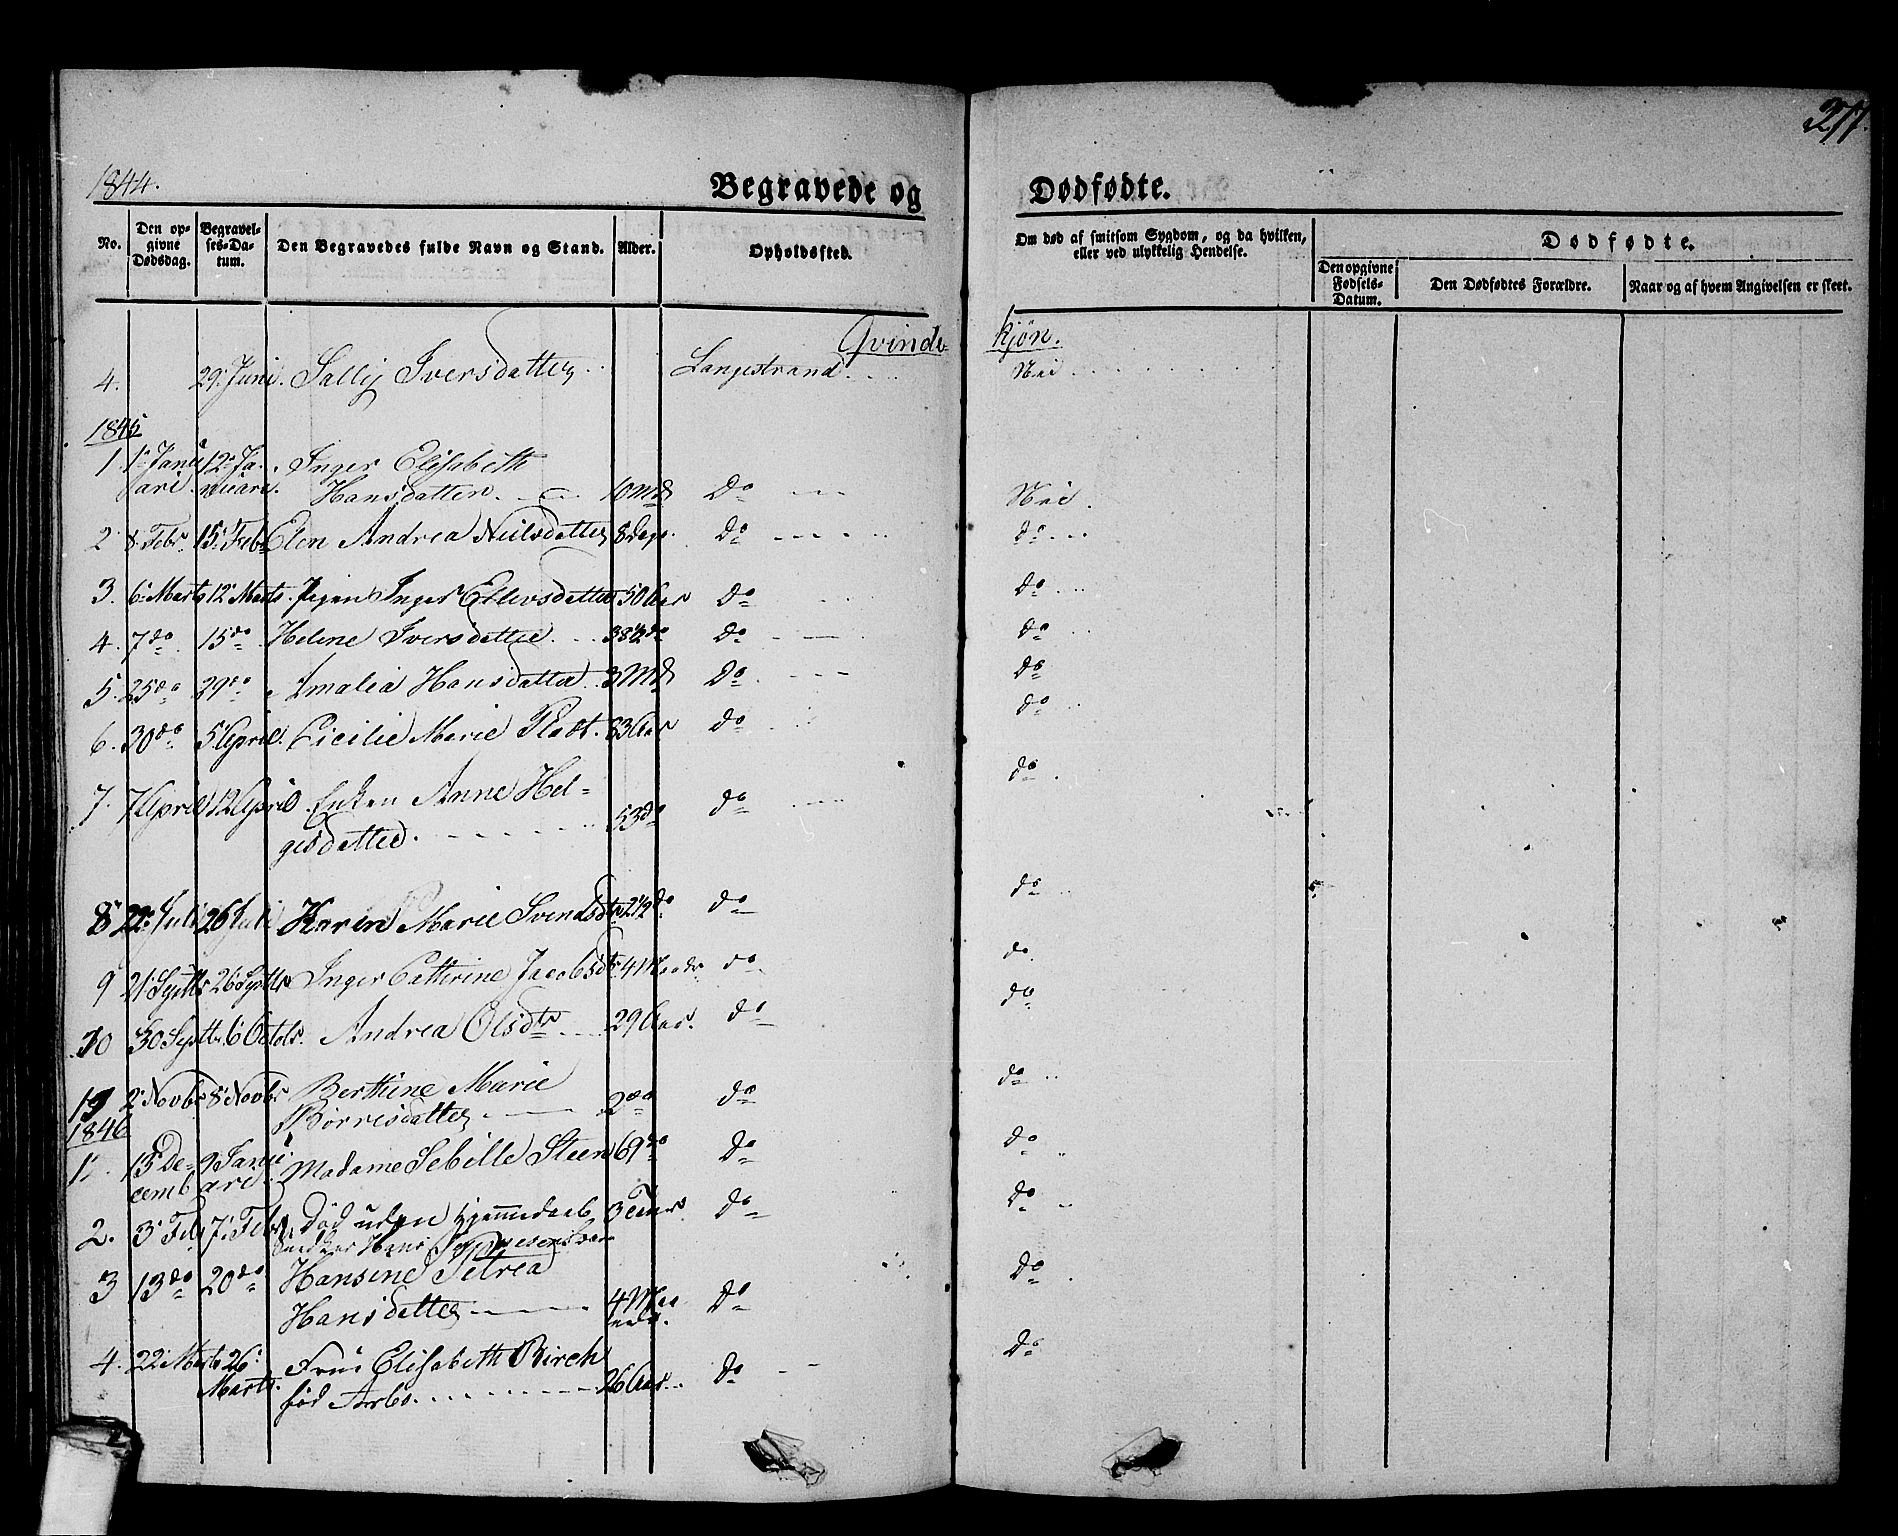 277.
1844.
Begravede og Dødfødte.
No. Den opgivne Dødsdag. Begravelses-Datum. Den Begravedes fulde Navn og Stand. Alder. Opholdssted. Om død af smitsom Sygdom, og da hvilken, eller ved ulykkelig Hendelse. Dødfødte.
Den opgivne Fødsels-Datum. Den Dødfødtes Forældre. Naar og af hvem Angivelsen er skeet.
Qvinde kjøn.
4. 29. Juni. Iversdatter Langestrand Nei
1845
1. 1. Janu 12. Ja- Inger Elisabeth
ari nuari. Hansdatter 10 Md Do Nei.
2 8. Febr. 15. Feb Elen Andrea Neilsdatter 8 Dage. do do
3. 6. Marts 12 Marts. Pigen Inger Ellevsdatter 50 Aar do do
4. 7 do 15 do Helene Iversdatter 38½ do do do
5. 25 do 29 do Amalia Hansdatter 3 Md Do Do
6. 30 do 5 April. Cicilie Marie 83 Aar do do
7. 7 April 12 April Enken Anne Hel-
gesdatter. 53 do do do
8 22. Juli 26 Juli Karen Marie Svendsdtr 2½ do do do
9 21. Septbr 26. Septbr Inger Cathrine Jacobsdtr 4 Maadr do do
10 30 Septbr. 6 Octob. Andrea Olsdtr 29 Aar. do do
2. Novbr 8. Novbr Berthine Marie
Børresdatter 2 do do do
1846
1. 13 De- 9 Janu Madame Sebille Steen 69 do do do
cemb ari.
2. 3. Feb 7. Febr Død uden Hjemmedaab 3 Timer do do
Hans
3 13 do 20 do Hansine Petrea
Hansdatter 4 Maa Do do
neder.
4. 22 Marts 26. Frue Elisabeth Birch
Marts. fød Arbo. 26 Aar do Do